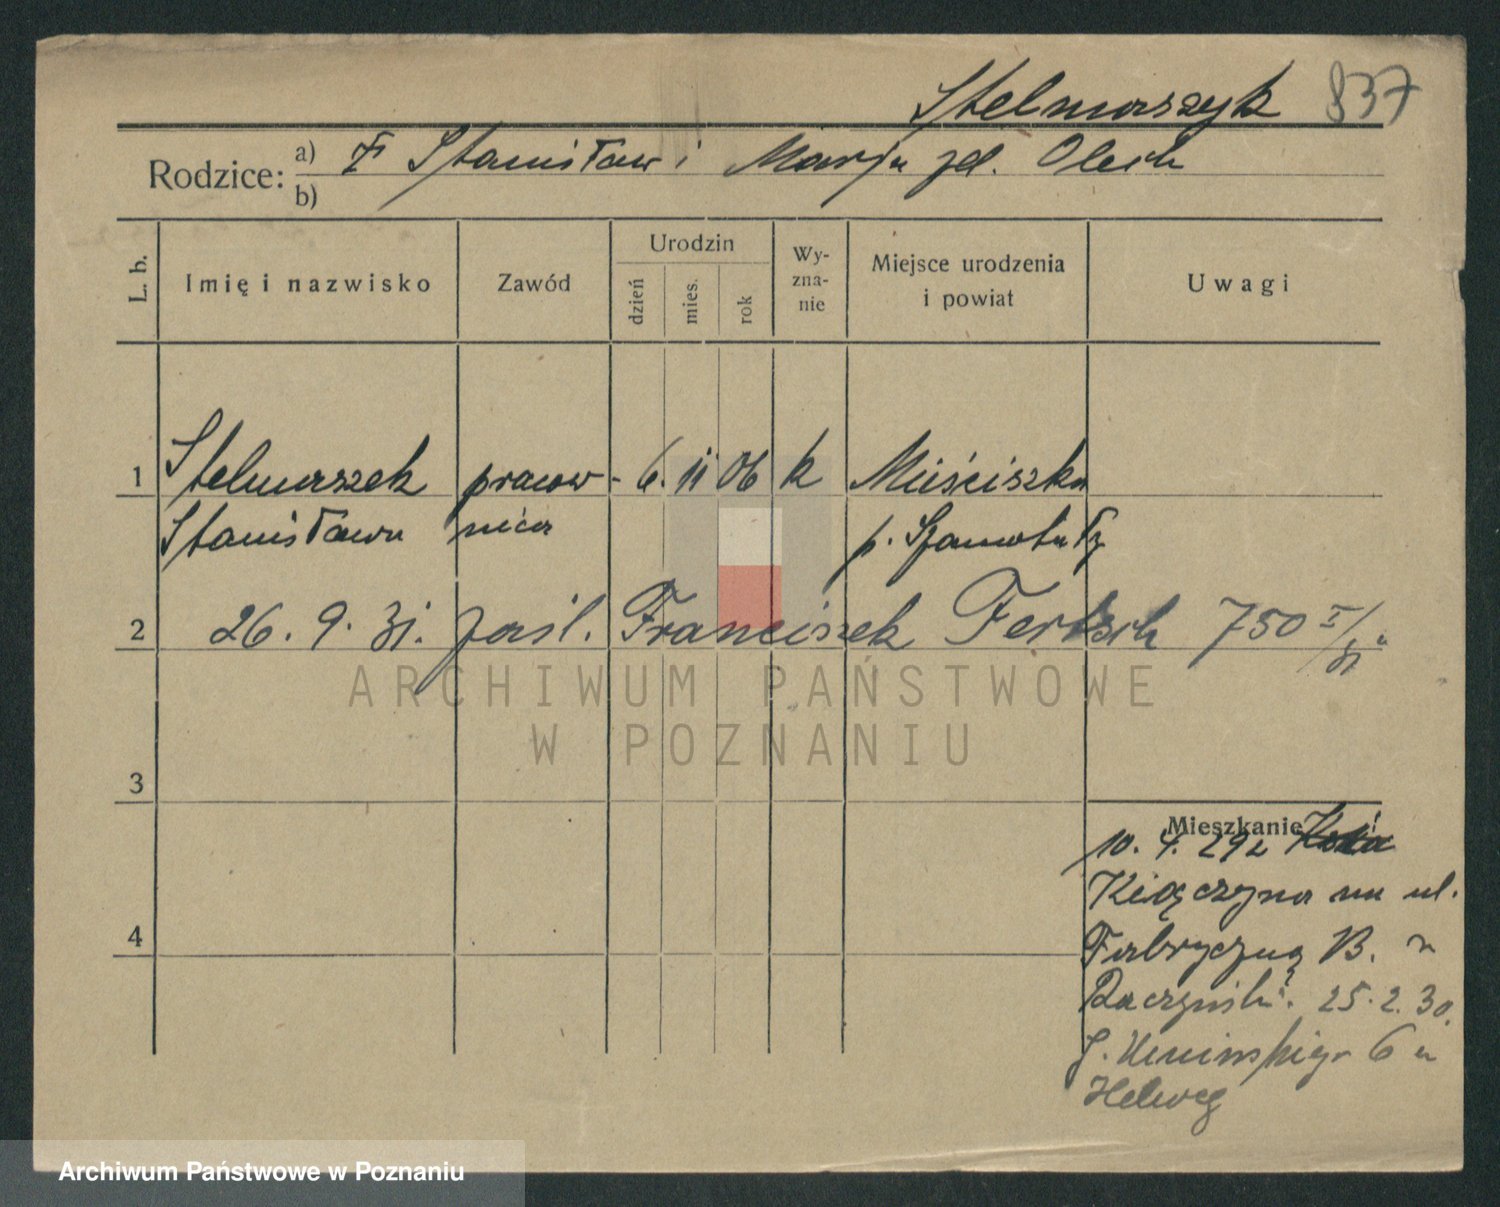 Stelmaszyk 837
Rodzice: a) Stanisław i Marja zd. Olech
b)
L. b. Imię i nazwisko Zawód Urodzin dzień mies. rok Wy-zna-nie Miejsce urodzenia i powiat Uwagi
1 Stelmaszek pracow- 6. 11 06 k Miściszka
Stanisława nica p. Szamotuły
2 26. 9. 31. zaśl. Franciszek Fertsch 750 I/31
ARCHIWUM PAŃSTWOWE
W POZNANIU
3
Mieszkanie
10. 4. 29 z
Kiączyna na ul.
4
Fabryczną B. u
Raczyński. 25. 2. 30.
6 u
Helweg
Archiwum Państwowe w Poznaniu